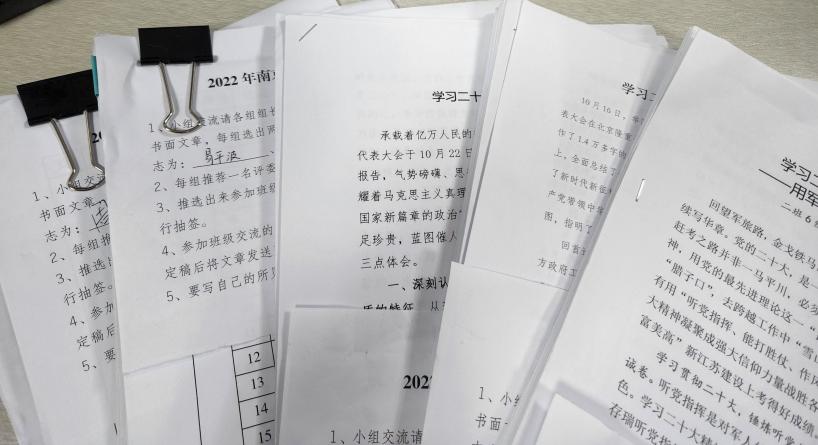 1、小组交
书面文章
志为：
2、每组推
3、推选出
行抽签。
4、参加
定稿后
5、要
2022 年南京
1、小组交流请各组组长
书面文章，每组选出两
志为：易平波、
2、每组推荐一名评委
3、推选出来参加班级
行抽签。
4、参加班级交流的
定稿后将文章发送
5、要写自己的所见
12
13
14
15
学习二十
承载着亿万人民的
代表大会于 10 月 22 日
报告，气势磅礴、思
耀着马克思主义真理
国家新篇章的政治
足珍贵，蓝图催人
三点体会。
一、深刻认
质的特征，从
2022
1、小组交流请
学习二
10 月 16 日，
表大会在北京隆重
作了 1.4 万多字的
上，全面总结了
了新时代新征
产党带领中
图，指明了
回首
方政府工
1、小
书面
学习二十
——用军
二班 6
回望军旅路，金戈铁马
续写华章。党的二十大，是一
赶考之路并非一马平川，必须
神，用党的最先进理论这一“
“腊子口”，去跨越工作中“雪山
有用“听党指挥、能打胜仗、作风
大精神凝聚成强大信仰力量战胜各
富美高”新江苏建设上考得好成绩
试卷。听党指挥是对军人
学习贯彻二十大，锤炼听党
色。学习二十大精
存瑞听党指